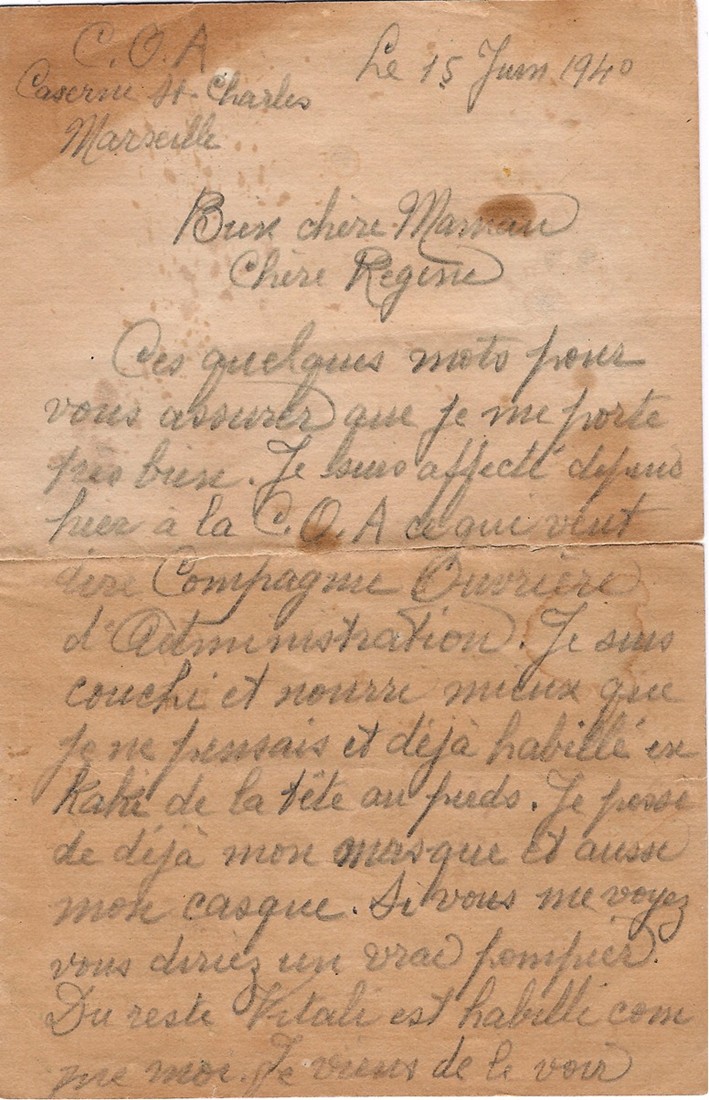 C.O.A
Le 15 Juin 1940
Caserne St-Charles
Marseille
Bien chère Maman
Chère Régine
Ces quelques mots pour
vous assurer que je me porte
très bien. Je suis affecté depuis
hier à la C.O.A ce que veut
dire Compagnie Ouvrière
d'Administration. Je suis
couché et nourri mieux que
je ne pensais et déjà habillé en
Kaki de la tête au pieds. Je possè
de déjà mon masque et aussi
mon casque. Si vous me voyez
vous diriez un vrai pompier.
Du reste Vitali est habillé com
me moi. Je viens de le voir